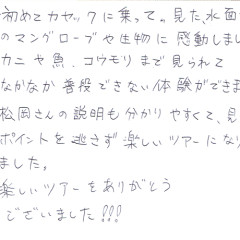 初めてカヤックに乗って。見た水面
のマングローブや生物に感動しまし
カニや魚、コウモリまで見られて
なかなか普段できない体験ができま
松岡さんの説明も分かりやすくて、見
ポイントを逃さず楽しいツアーになり
ました。
楽しいツアーをありがとう
ございました!!!